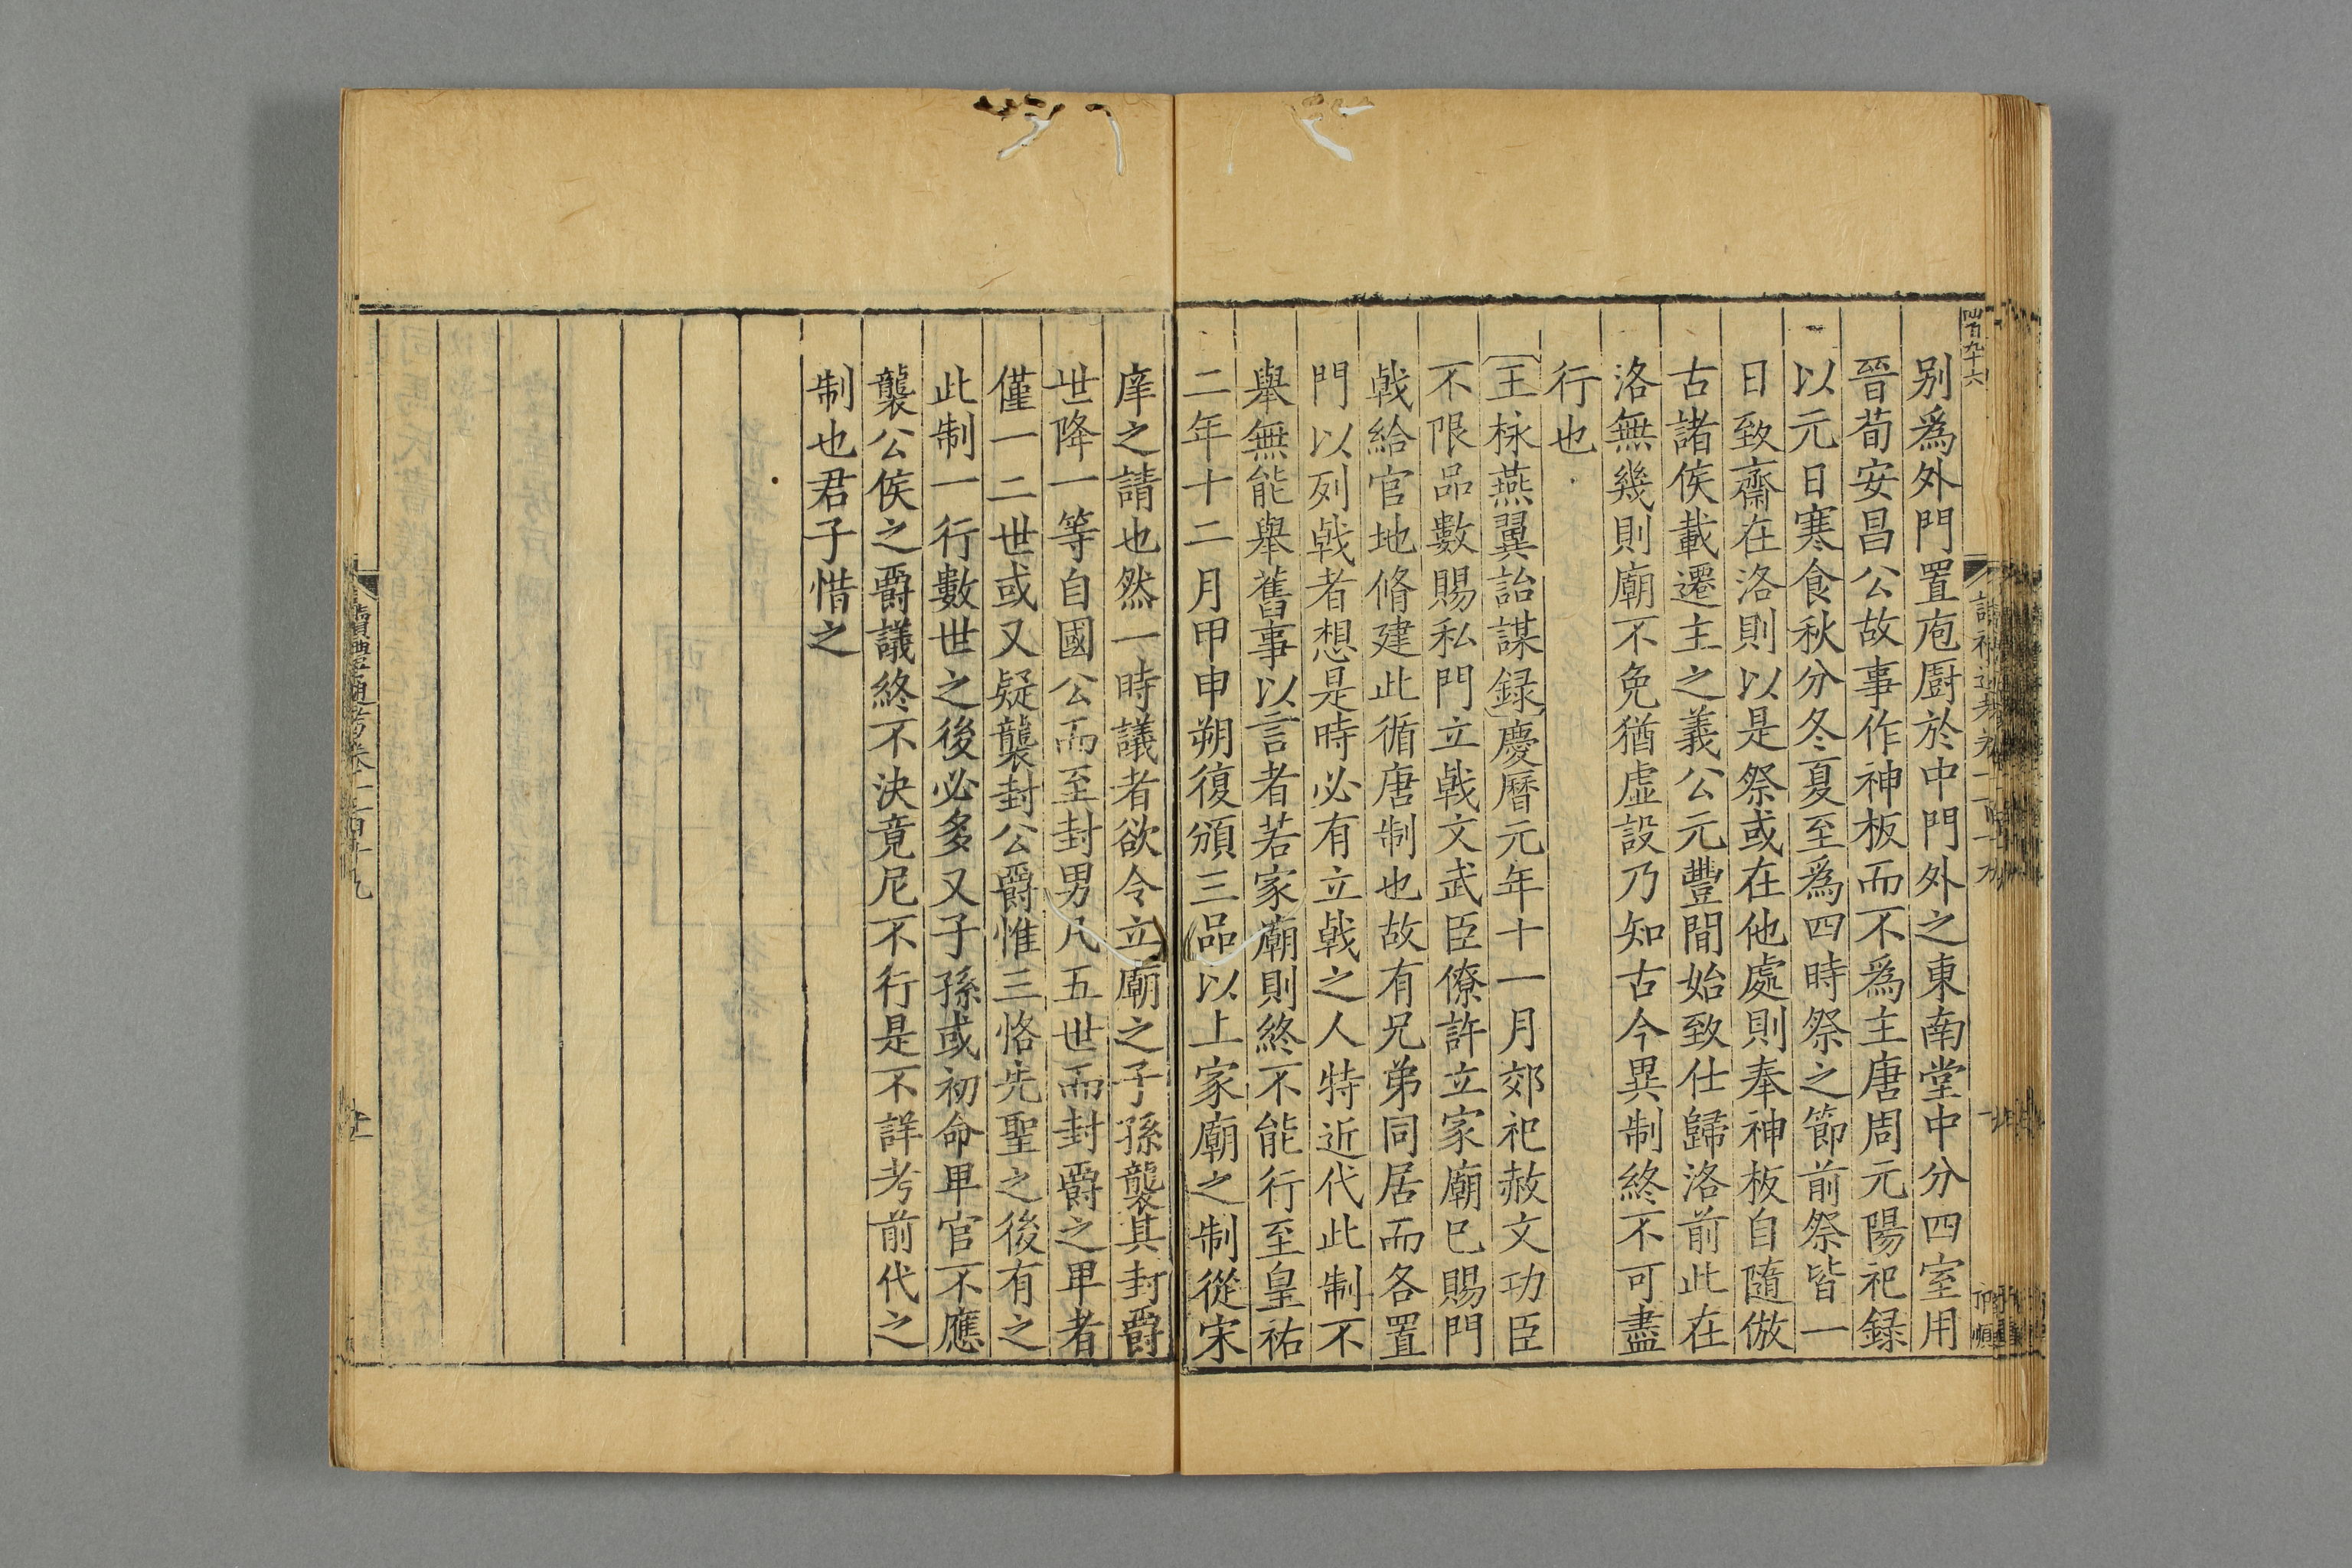 別爲外門置庖厨於中門外之東南堂中分四室用
晉荀安昌公故事作神板而不爲主唐周元陽祀録
以元日寒食秋分冬夏至爲四時祭之節前祭皆一
日致齋在洛則以是祭或在他處則奉神板自隨倣
古諸侯載遷主之義公元豐間始致仕歸洛前此在
洛無幾則廟不免猶虛設乃知古今異制終不可盡
行也
〔王栐燕翼詒謀録〕慶曆元年十一月郊祀赦文功臣
不限品數賜私門立戟文武臣僚許立家廟巳賜門
戟給官地脩建此循唐制也故有兄弟同居而各置
門以列戟者想是時必有立戟之人特近代此制不
舉無能舉舊事以言者若家廟則終不能行至皇祐
二年十二月甲申朔復頒三品以上家廟之制從宋
庠之請也然一時議者欲令立廟之子孫襲其封爵
世降一等自國公而至封男凡五世而封爵之卑者
僅一二世或又疑襲封公爵惟三恪先聖之後有之
此制一行數世之後必多又子孫或初命卑官不應
襲公侯之爵議終不決竟尼不行是不詳考前代之
制也君子惜之
讀禮通考卷一百十九